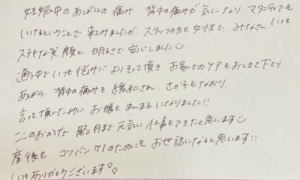 妊娠中のあばらの痛み 背中の痛みが気になり、マタニティでも
いけるということで来ましたが、スタッフの方も女性で、みなさんいつも
ステキな笑顔と明るさで安心しました
通う中でいつも悩みにおこたえ頂き お家でのケアもおしえて下さり、
あばら、背中の痛みも緩和され、さか子もなおり、
言って頂いたように お腹もまんまるになりました!!
このおかげで 臨月まで元気に仕事もできたと思います
産後も コツバンケアのためにも お世話になると思います!!
いつもありがとうございます